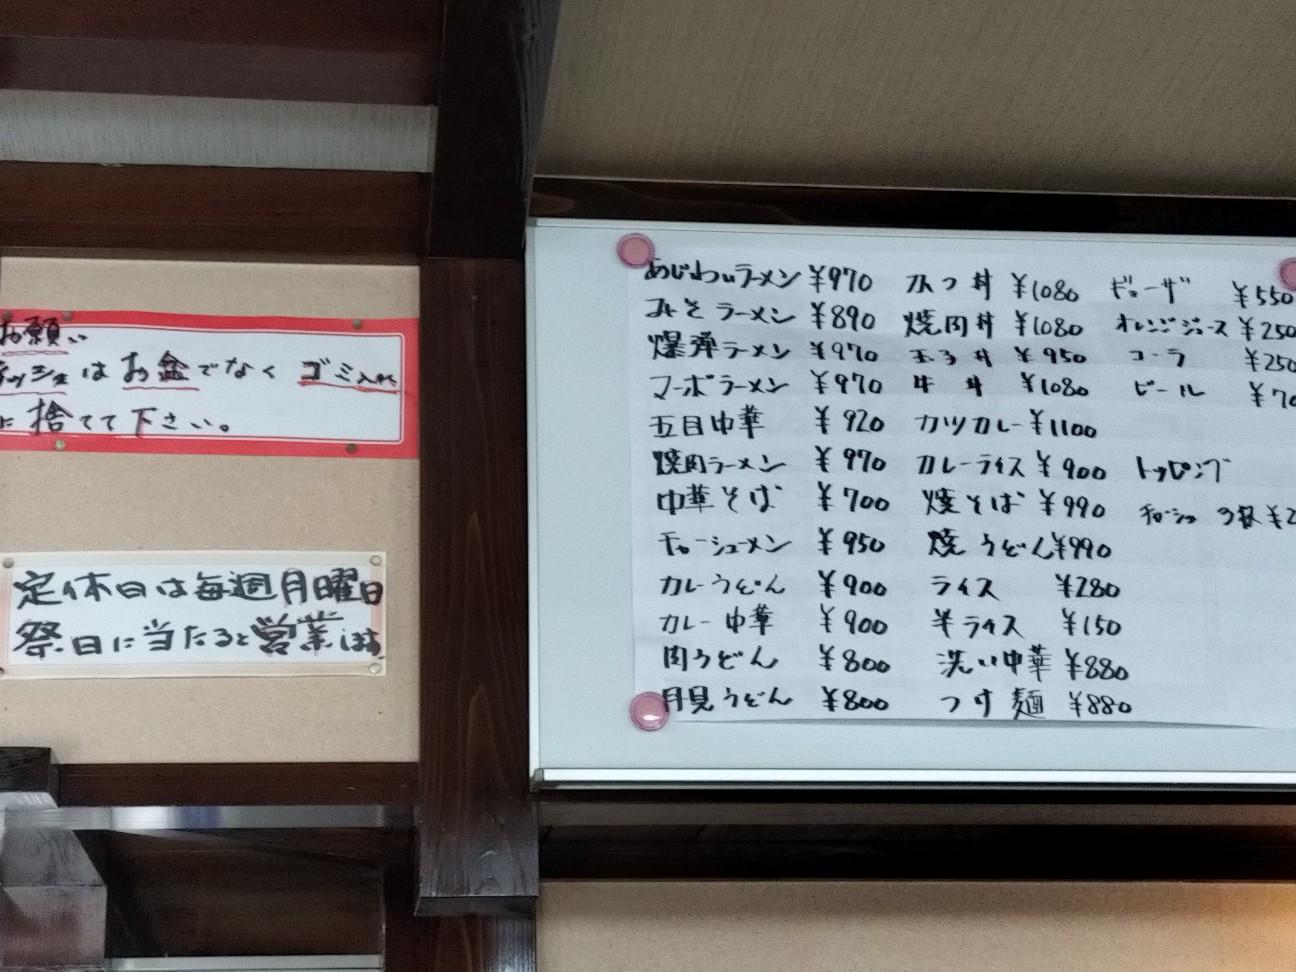 お願い
ティッシュはお盆でなくゴミ入れ
に捨てて下さい。
定休日は毎週月曜日
祭日に当たると営業します
あじわいラーメン ¥970 カツ丼 ¥1080 ギョーザ ¥550
みそラーメン ¥890 焼肉丼 ¥1080 オレンジジュース ¥250
爆弾ラーメン ¥970 玉子丼 ¥950 コーラ ¥250
マーボラーメン ¥970 牛丼 ¥1080 ビール ¥70
五目中華 ¥920 カツカレー ¥1100
焼肉ラーメン ¥970 カレーライス ¥900 トッピング
中華そば ¥700 焼そば ¥990 チャーシュー 3枚 ¥2
チャーシューメン ¥950 焼うどん ¥990
カレーうどん ¥900 ライス ¥280
カレー中華 ¥900 半ライス ¥150
肉うどん ¥800 洗い中華 ¥880
月見うどん ¥800 つけ麺 ¥880